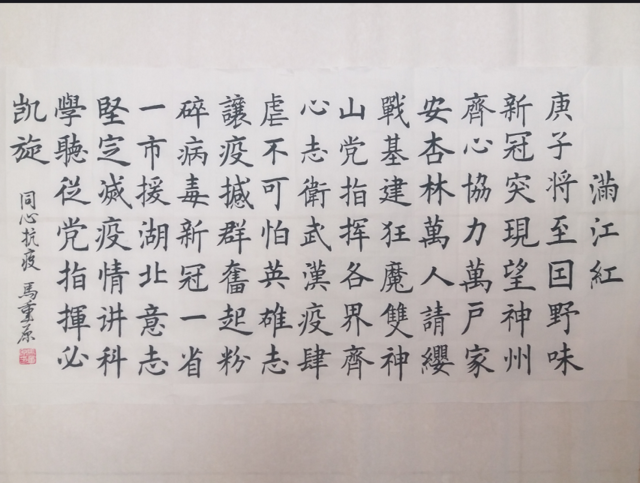 滿江紅
庚子将至囙野味
新冠突現望神州
齊心協力萬戸家
安杏林萬人請纓
戰基建狂魔雙神
山党指挥各界齊
心志衛武漢疫肆
虐不可怕英雄志
讓疫撼群奮起粉
碎病毒新冠一省
一市援湖北意志
堅定滅疫情讲科
學聽從党指揮必
凯旋
同心抗疫 馬重原